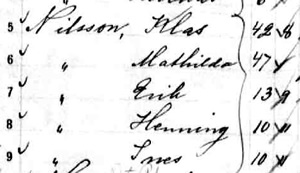 5 Nilsson, Klas 42
6 " Mathilda 47
7 " Erik 13
8 " Henning 10 "
9 " Ines 10 "